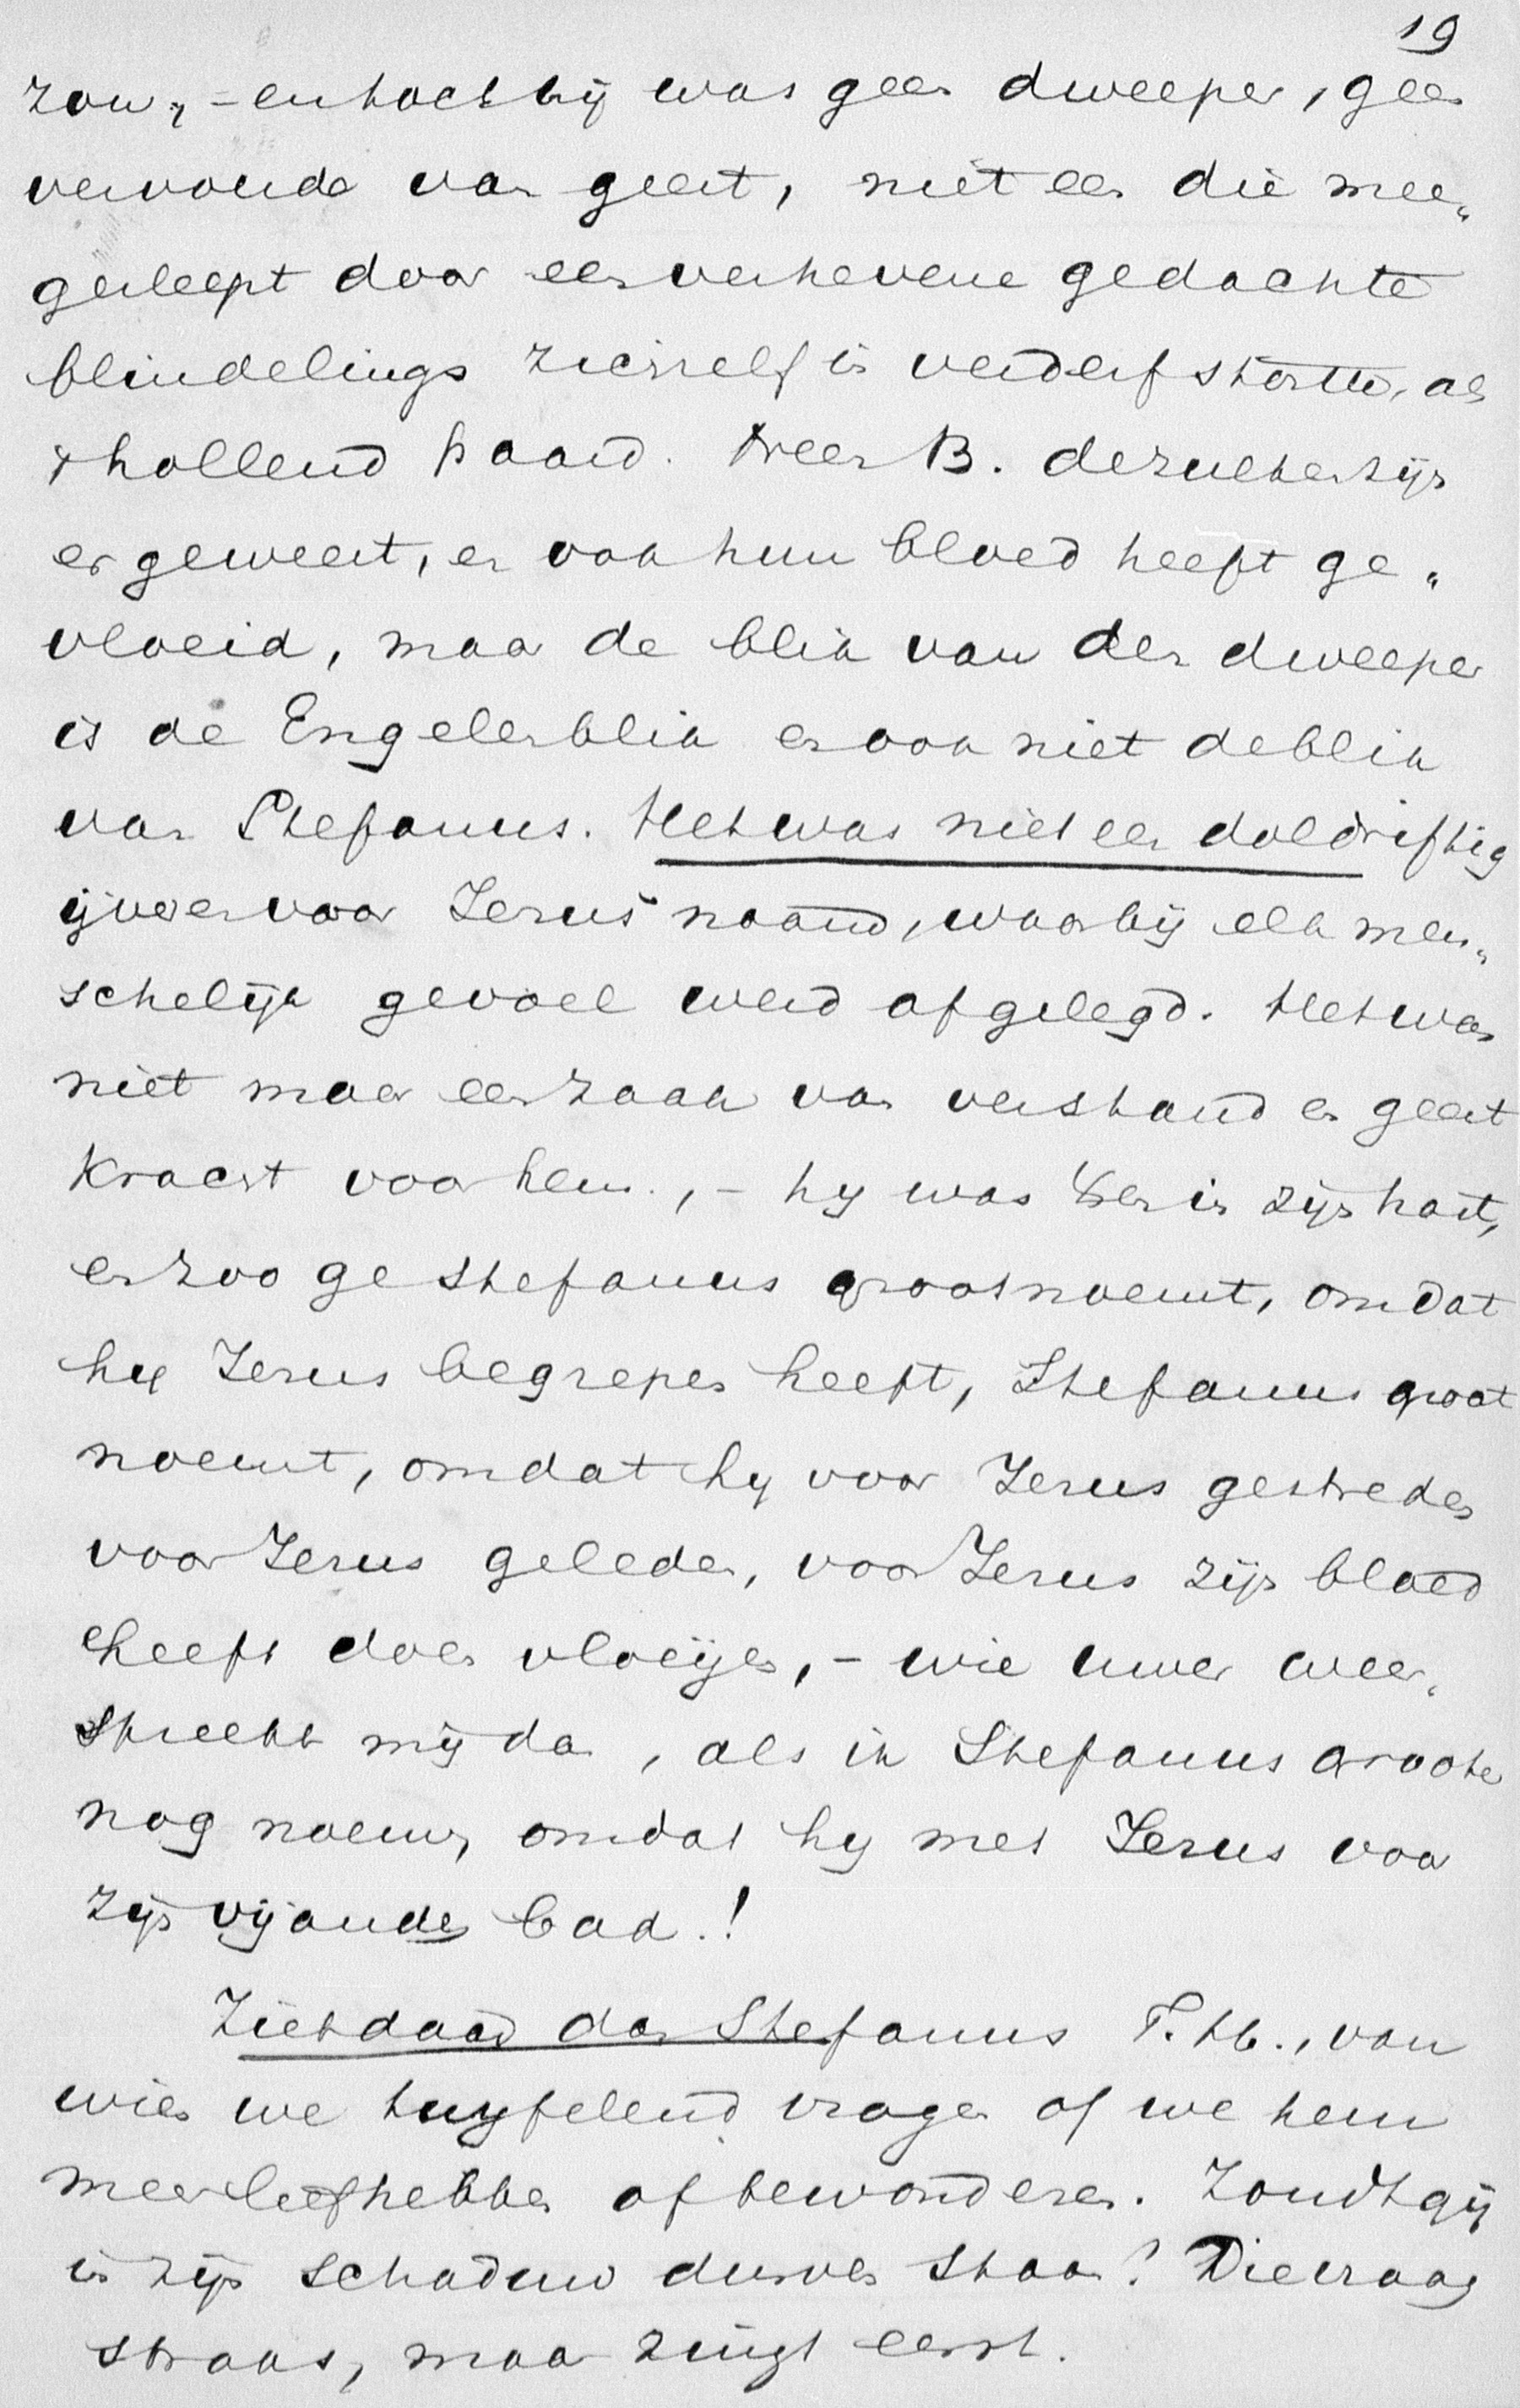 19
zou, – en toch hij was geen dweeper, geen
verwonde van geest, niet een die mee„
gesleept door een verhevene gedachte
blindelings zichzelf in verderf stortte, als
't hollend paard. Neen B. dezulken zijn
er geweest, en ook hun bloed heeft ge„
vloeid, maar de blik van den dweeper
is de Engelenblik en ook niet de blik
van Stefanus. Het was niet een doldriftig
ijveren voor Jezus' naam, waarbij elk men„
schelijk gevoel werd afgelegd. Het was
niet maar een zaak van verstand en geest
kracht voor hem, – hy was Xten in zijn hart,
en zoo ge Stefanus groot noemt, omdat
hy Jezus begrepen heeft, Stefanus groot
noemt, omdat hy voor Jezus gestreden
voor Jezus geleden, voor Jezus zijn bloed
heeft doen vloeijen, – wie uwer weer„
spreekt mij dan, als ik Stefanus grooter
nog noem, omdat hy met Jezus voor
zijn vijanden bad.!
Ziet daar dan Stefanus T. H., van
wien we twyfelend vragen of we hem
meer liefhebben of bewonderen. Zoudt gij
in zijn schaduw durven staan? Die vraag
straks, maar zingt eerst.